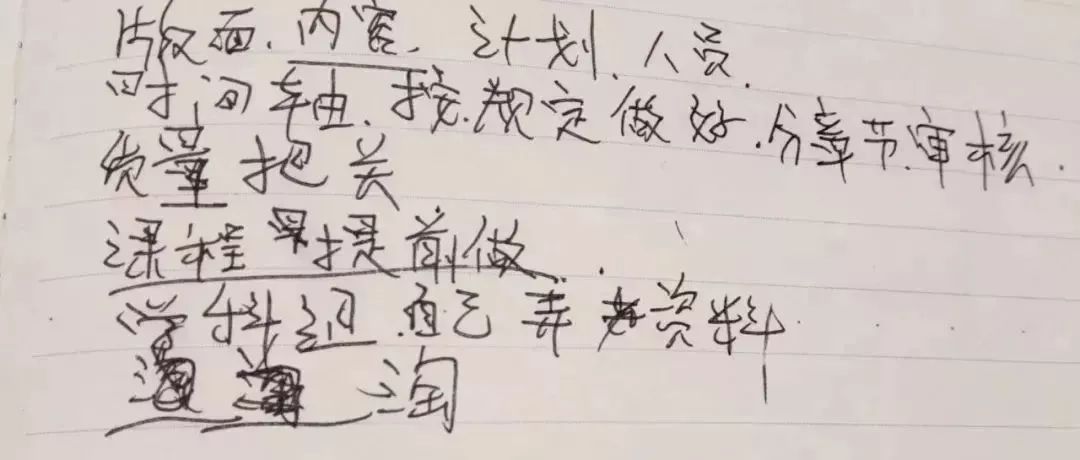 版面、内容、计划、人员、
时间轴、按规定做好、分章节审核.
质量把关
课程提前做.
学科组自己弄资料
淘